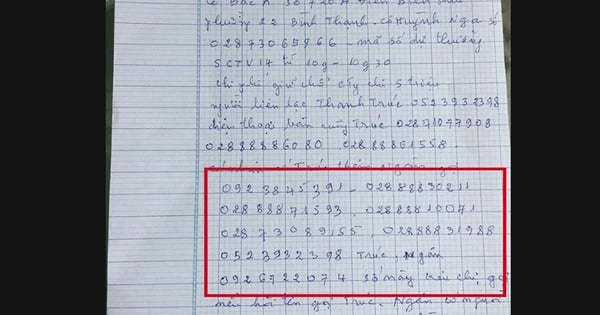 Phường 22 Bình Thạnh. Cô Huỳnh Nga số
02873065966 - mã số dự thưởng
SCTV14 từ 10g - 10g30
chi phí giữ chỗ cty chi 5 triệu
người liên lạc Thanh Trúc 0523932398
điện thoại bàn cũng Trúc 02871077908
02888886080 02888861558
092 3845391 - 02888830211
02888871593, 02888810071
02873089155, 02888831988
0523932398 Trúc, Ngân
0926722074 số này kêu chị gọi
nếu hỏi tên gọi Trúc. Ngân